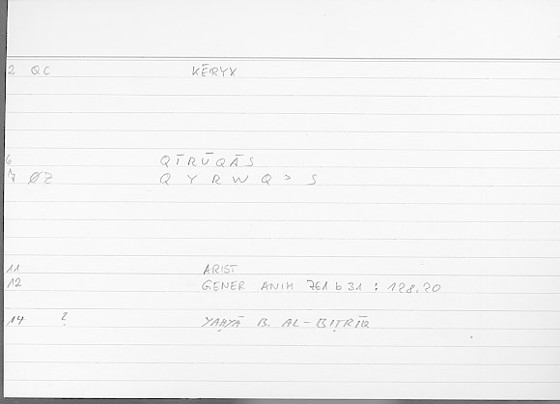 2 QC KĒRYX
6 QĪRŪQĀS
7 ØZ Q Y R W Q > S
11 ARIST
12 GENER ANIM 761 b 31 : 128.20
14 ? YAḤYĀ B. AL-BIṬRĪQ